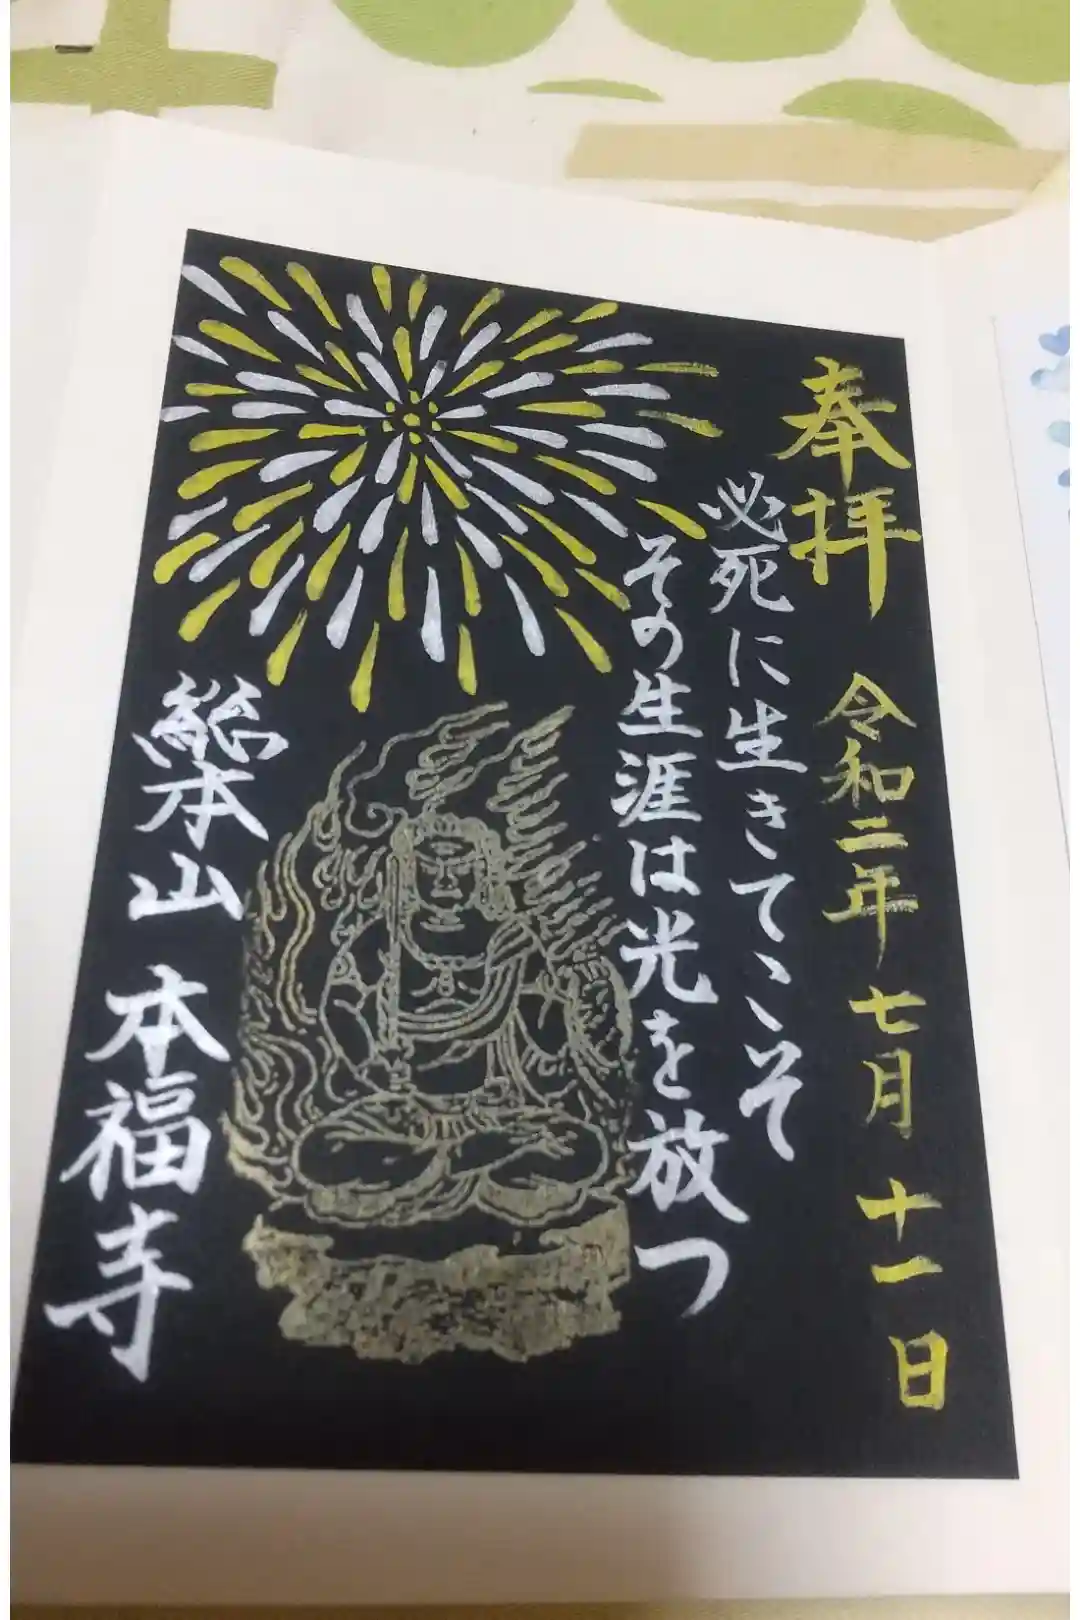 奉拝
令和二年七月十一日
必死に生きてこそ
その生涯は光を放つ
総本山 本福寺